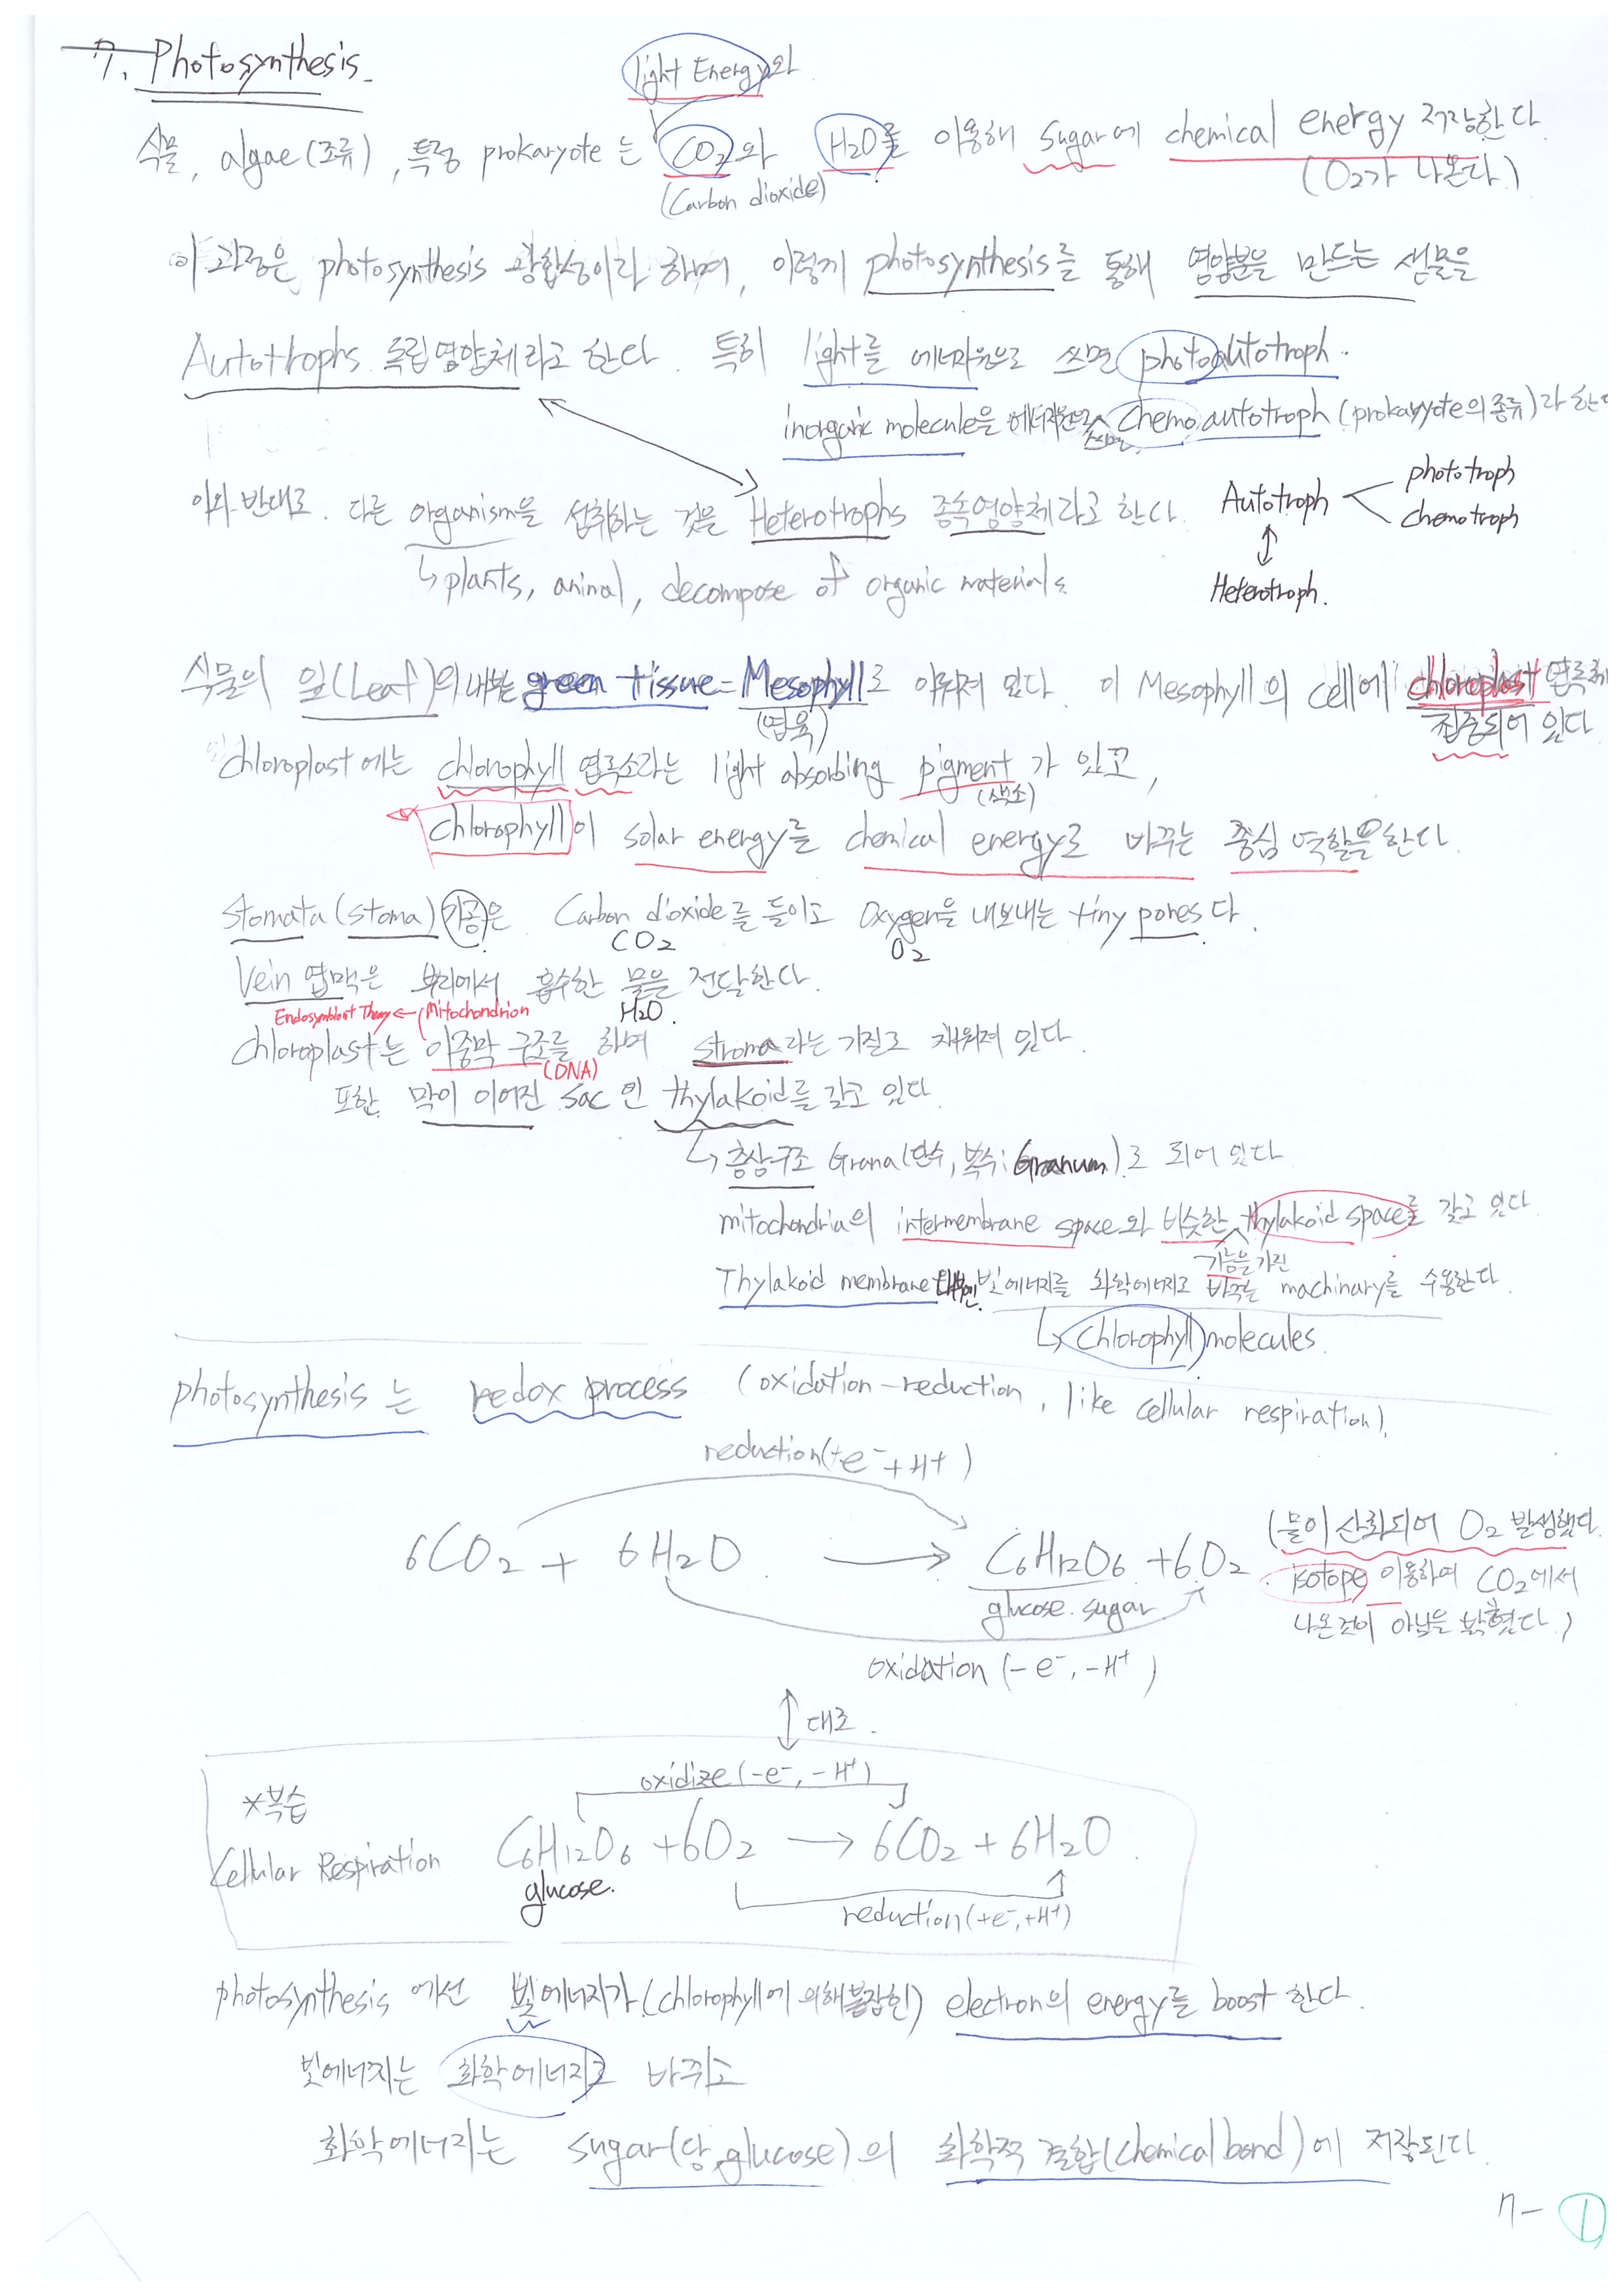 7. Photosynthesis
light Energy와
식물, algae(조류), 특정 prokaryote 는 CO2와 H2O를 이용해 sugar에 chemical energy 저장한다
(Carbon dioxide)
(O2가 나온다.)
이 과정은 photosynthesis 광합성이라 하며, 이렇게 photosynthesis를 통해 영양분을 만드는 생물을
Autotrophs 독립영양체라고 한다. 특히 light를 에너지원으로 쓰면 photoautotroph.
inorganic molecule을 에너지원으로 쓰면 chemo autotroph (prokaryote의 종류)라 한다
이와 반대로. 다른 organism을 섭취하는 것을 Heterotrophs 종속영양체라고 한다.
↳ plants, animal, decompose of organic materials
Autotroph
phototroph
chemotroph
↕
Heterotroph.
식물의 잎(Leaf)의 내부는 green tissue = Mesophyll로 이뤄져 있다. 이 Mesophyll의 cell에 chloroplast 엽록체
(엽육)
집중되어 있다
chloroplast에는 chlorophyll 엽록소라는 light absorbing pigment 가 있고,
(색소)
chlorophyll이 solar energy를 chemical energy로 바꾸는 중심 역할을 한다.
stomata (stoma) 기공은 Carbon dioxide를 들이고 Oxygen을 내보내는 tiny pores다.
CO2 O2
Vein 엽맥은 뿌리에서 흡수한 물을 전달한다.
H2O.
Endosymbiont Theory ← Mitochondrion
chloroplast는 이중막 구조를 하며 stroma라는 기질로 채워져 있다.
(DNA)
또한 막이 이어진 sac 인 thylakoid를 갖고 있다.
↳ 층상구조 Grana(단수, 복수: Granum)로 되어 있다
mitochondria의 intermembrane space와 비슷한 thylakoid space를 갖고 있다.
기능을 가진
Thylakoid membrane 빛에너지를 화학에너지로 바꾸는 machinary를 수용한다.
↳ Chlorophyll molecules.
photosynthesis 는 redox process (oxidation-reduction, like cellular respiration).
reduction(+e- + H+)
6CO2 + 6H2O → C6H12O6 + 6O2
glucose. sugar
oxidation (-e-, -H+)
(물이 산화되어 O2 발생했다.
isotope 이용하여 CO2에서
나온것이 아님을 밝혔다.)
↕ 대조.
*복습
Cellular Respiration
oxidize (-e-, -H+)
C6H12O6 + 6O2 → 6CO2 + 6H2O.
glucose.
reduction(+e-, +H+)
photosynthesis 에선 빛에너지가 (chlorophyll에 의해 붙잡힌) electron의 energy를 boost 한다.
빛에너지는 화학에너지로 바뀌고
화학에너지는 sugar(당, glucose)의 화학적 결합(chemical bond)에 저장된다.
7- ①